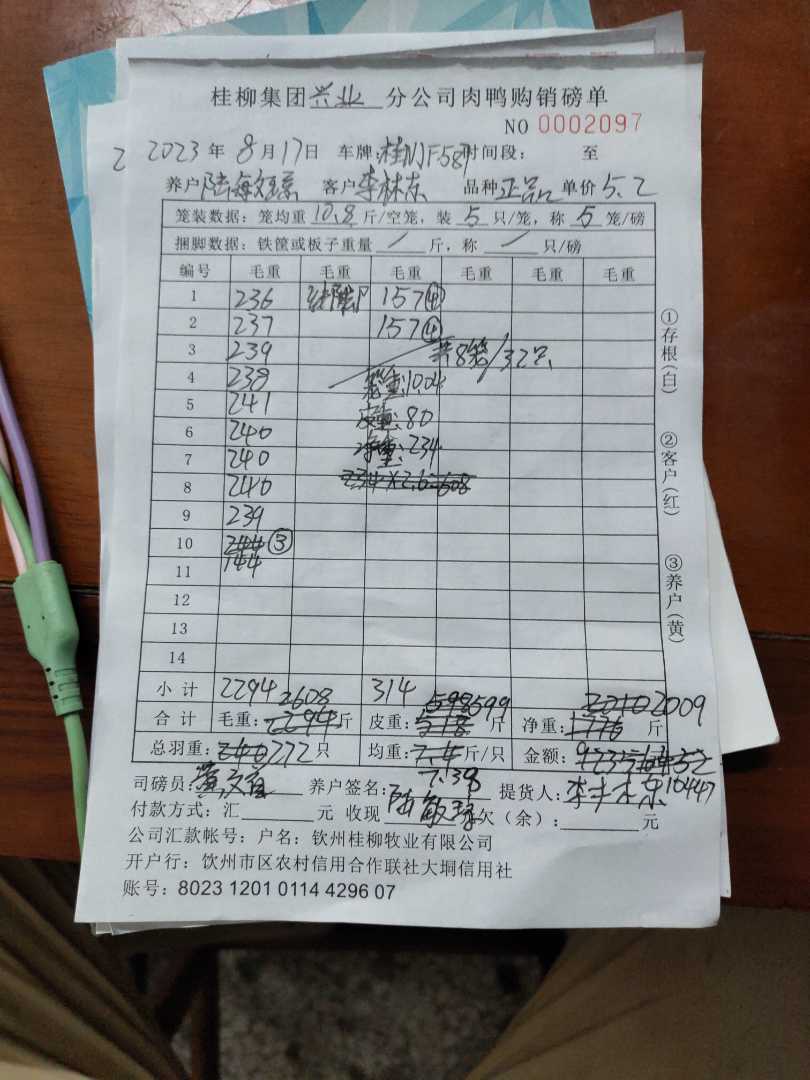 桂柳集团兴业分公司肉鸭购销磅单
NO 0002097
2 2023年8月17日 车牌:桂NJF587时间段: 至
养户 客户李林东 品种正品 单价5.2
笼装数据:笼均重10.8斤/空笼,装5只/笼,称5笼/磅
捆脚数据:铁筐或板子重量/斤,称/只/磅
编号 毛重 毛重 毛重 毛重 毛重 毛重
1 236 157④
2 237 157④
3 239 共8笼/32只
4 238 笼重:10.04
5 241 皮重:80
6 240 净重:234
7 240
8 240 234×2.6=608
9 239
10 244③
11 144
12
13
14
小计 2294 314
合计 毛重:2294 2608斤 皮重:518 598 599斤 净重:1776 2010 2009斤
总羽重:240 272只 均重:7.4 7.398斤/只 金额: 10447
司磅员: 养户签名: 提货人:李林东
付款方式:汇 元 收现 欠(余): 元
公司汇款帐号:户名:钦州桂柳牧业有限公司
开户行:饮州市区农村信用合作联社大垌信用社
账号:8023 1201 0114 4296 07
①存根(白)
②客户(红)
③养户(黄)